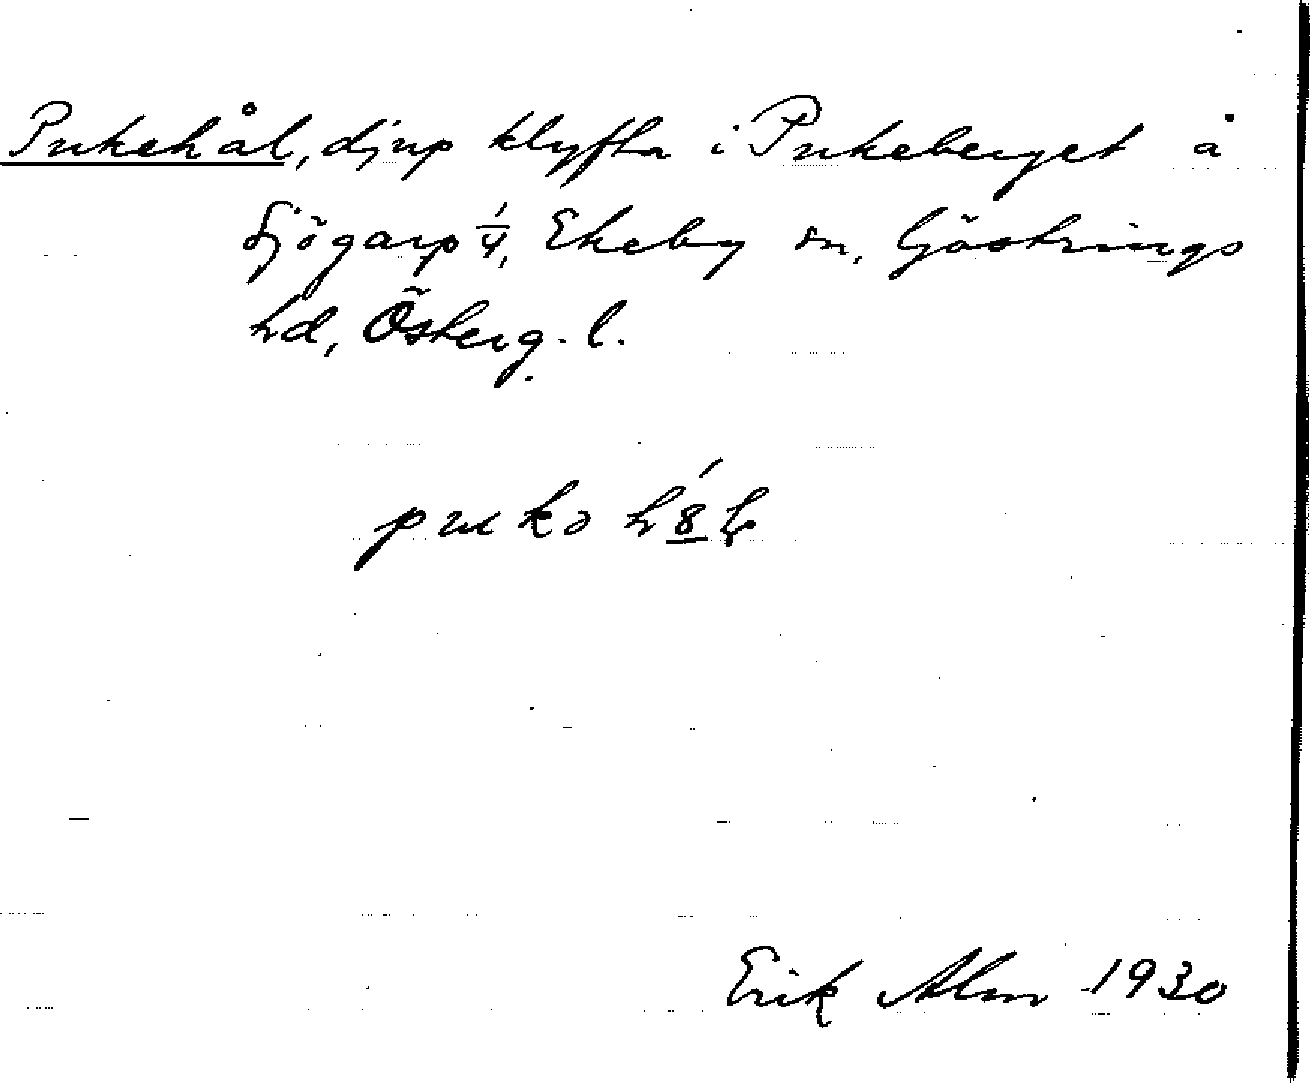 Pukehål, djup klyfta i Pukeberget å
Sjögarp 1/4, Ekeby sn, Göstrings
hd, Österg. l.
Erik Alm 1930